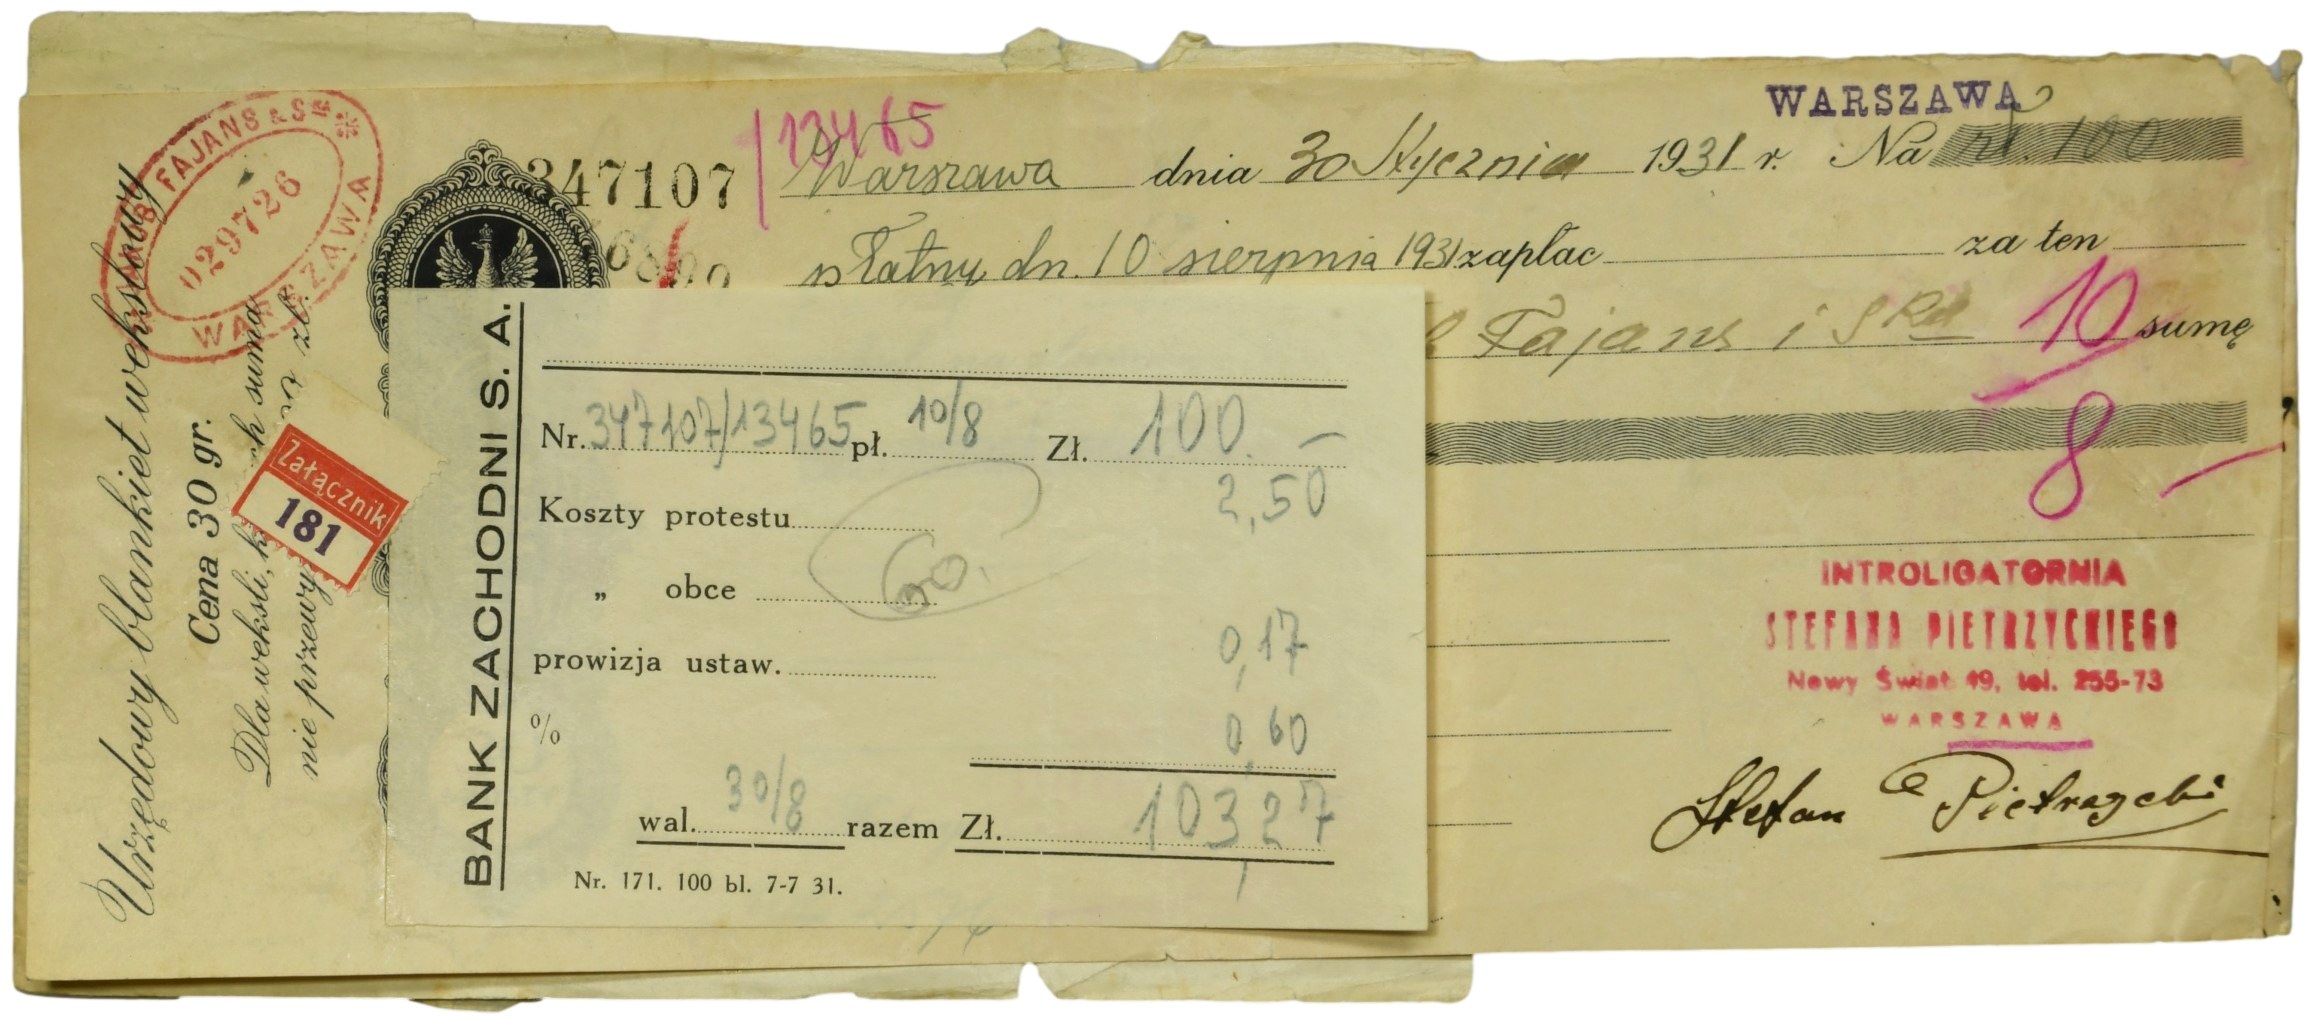 WARSZAWA
13465
347107 Warszawa dnia 30 Stycznia 1931 r. Na zł. 100
płatny dn. 10 sierpnia 1931 zapłac za ten
Fajans i Ska sumę
10
8
FAJANS & Ska
029726
WARSZAWA
Urzędowy blankiet wekslowy
Cena 30 gr.
Dla weksli, k ch suma
nie przewy zł.
Załącznik
181
BANK ZACHODNI S. A.
Nr. 347107/13465 pł. 10/8 Zł. 100.—
Koszty protestu 2,50
„ obce
prowizja ustaw. 0,17
% 0,60
wal. 30/8 razem Zł. 103,27
Nr. 171. 100 bl. 7-7 31.
INTROLIGATORNIA
STEFANA PIETRZYCKIEGO
Nowy Świat 49, tel. 255-73
WARSZAWA
Stefan Pietrzycki